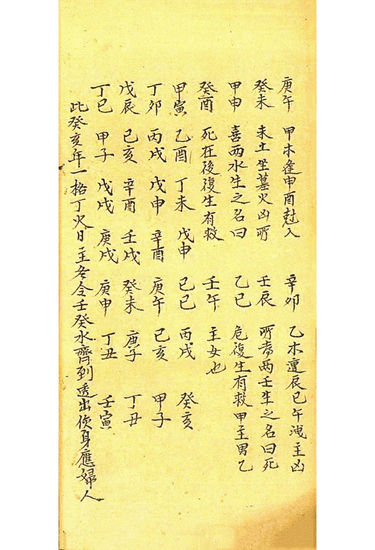 庚午 甲木逢申酉尅入 辛卯 乙木遭辰巳午洩主凶
癸未 未土坐墓火凶所 壬辰 所喜两壬生之名曰死
甲申 喜两水生之名曰 乙巳 危復生有救甲主男乙
癸酉 死在後復生有救 壬午 主女也
甲寅 乙酉 丁未 戊申 己巳 丙戌 癸亥
丁卯 丙戌 戊申 辛酉 庚午 己亥 甲子
戊辰 己亥 辛酉 壬戌 癸未 庚子 丁丑
丁巳 甲子 戊戌 庚戌 庚申 丁丑 壬寅
此癸亥年一格丁火日主冬令壬癸水齊到透出身應婦人